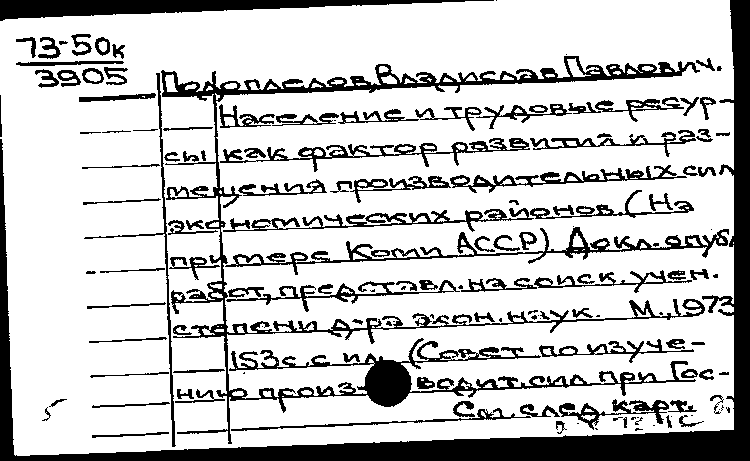 73-50к
3905
Подоплелов, Владислав Павлович.
Население и трудовые ресур-
сы как фактор развития и раз-
мещения производительных сил
экономических районов. (На
примере Коми АССР). Докл. опубл
работ, представл. на соиск. учен.
степени д-ра экон. наук. М., 1973
153 с. с ил. (Совет по изуче-
нию произ- водит. сил при Гос-
5
См. след. карт.